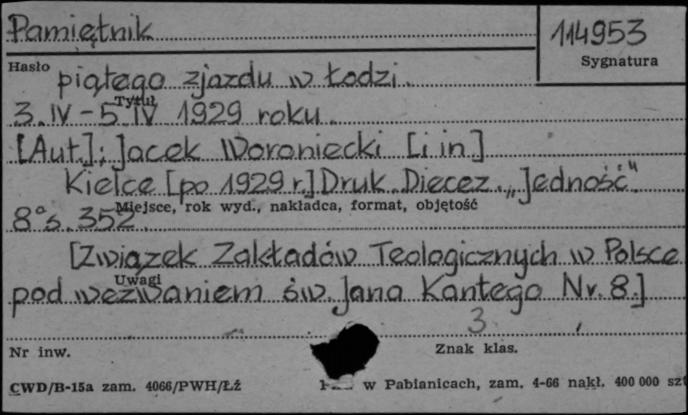 Pamiętnik
114953
Hasło
Sygnatura
piątego zjazdu w Łodzi.
Tytuł
3.IV-5 IV 1929 roku.
[Aut.]: Jacek Woroniecki [i in.]
Kielce [po 1929 r.] Druk. Diecez. „Jedność".
Miejsce, rok wyd., nakładca, format, objętość
8° s. 352.
[Związek Zakładów Teologicznych w Polsce
Uwagi
pod wezwaniem św. Jana Kantego Nr. 8.]
3
Nr inw.
Znak klas.
CWD/B-15a zam. 4066/PWH/Łź
w Pabianicach, zam. 4-66 nakł. 400 000 szt